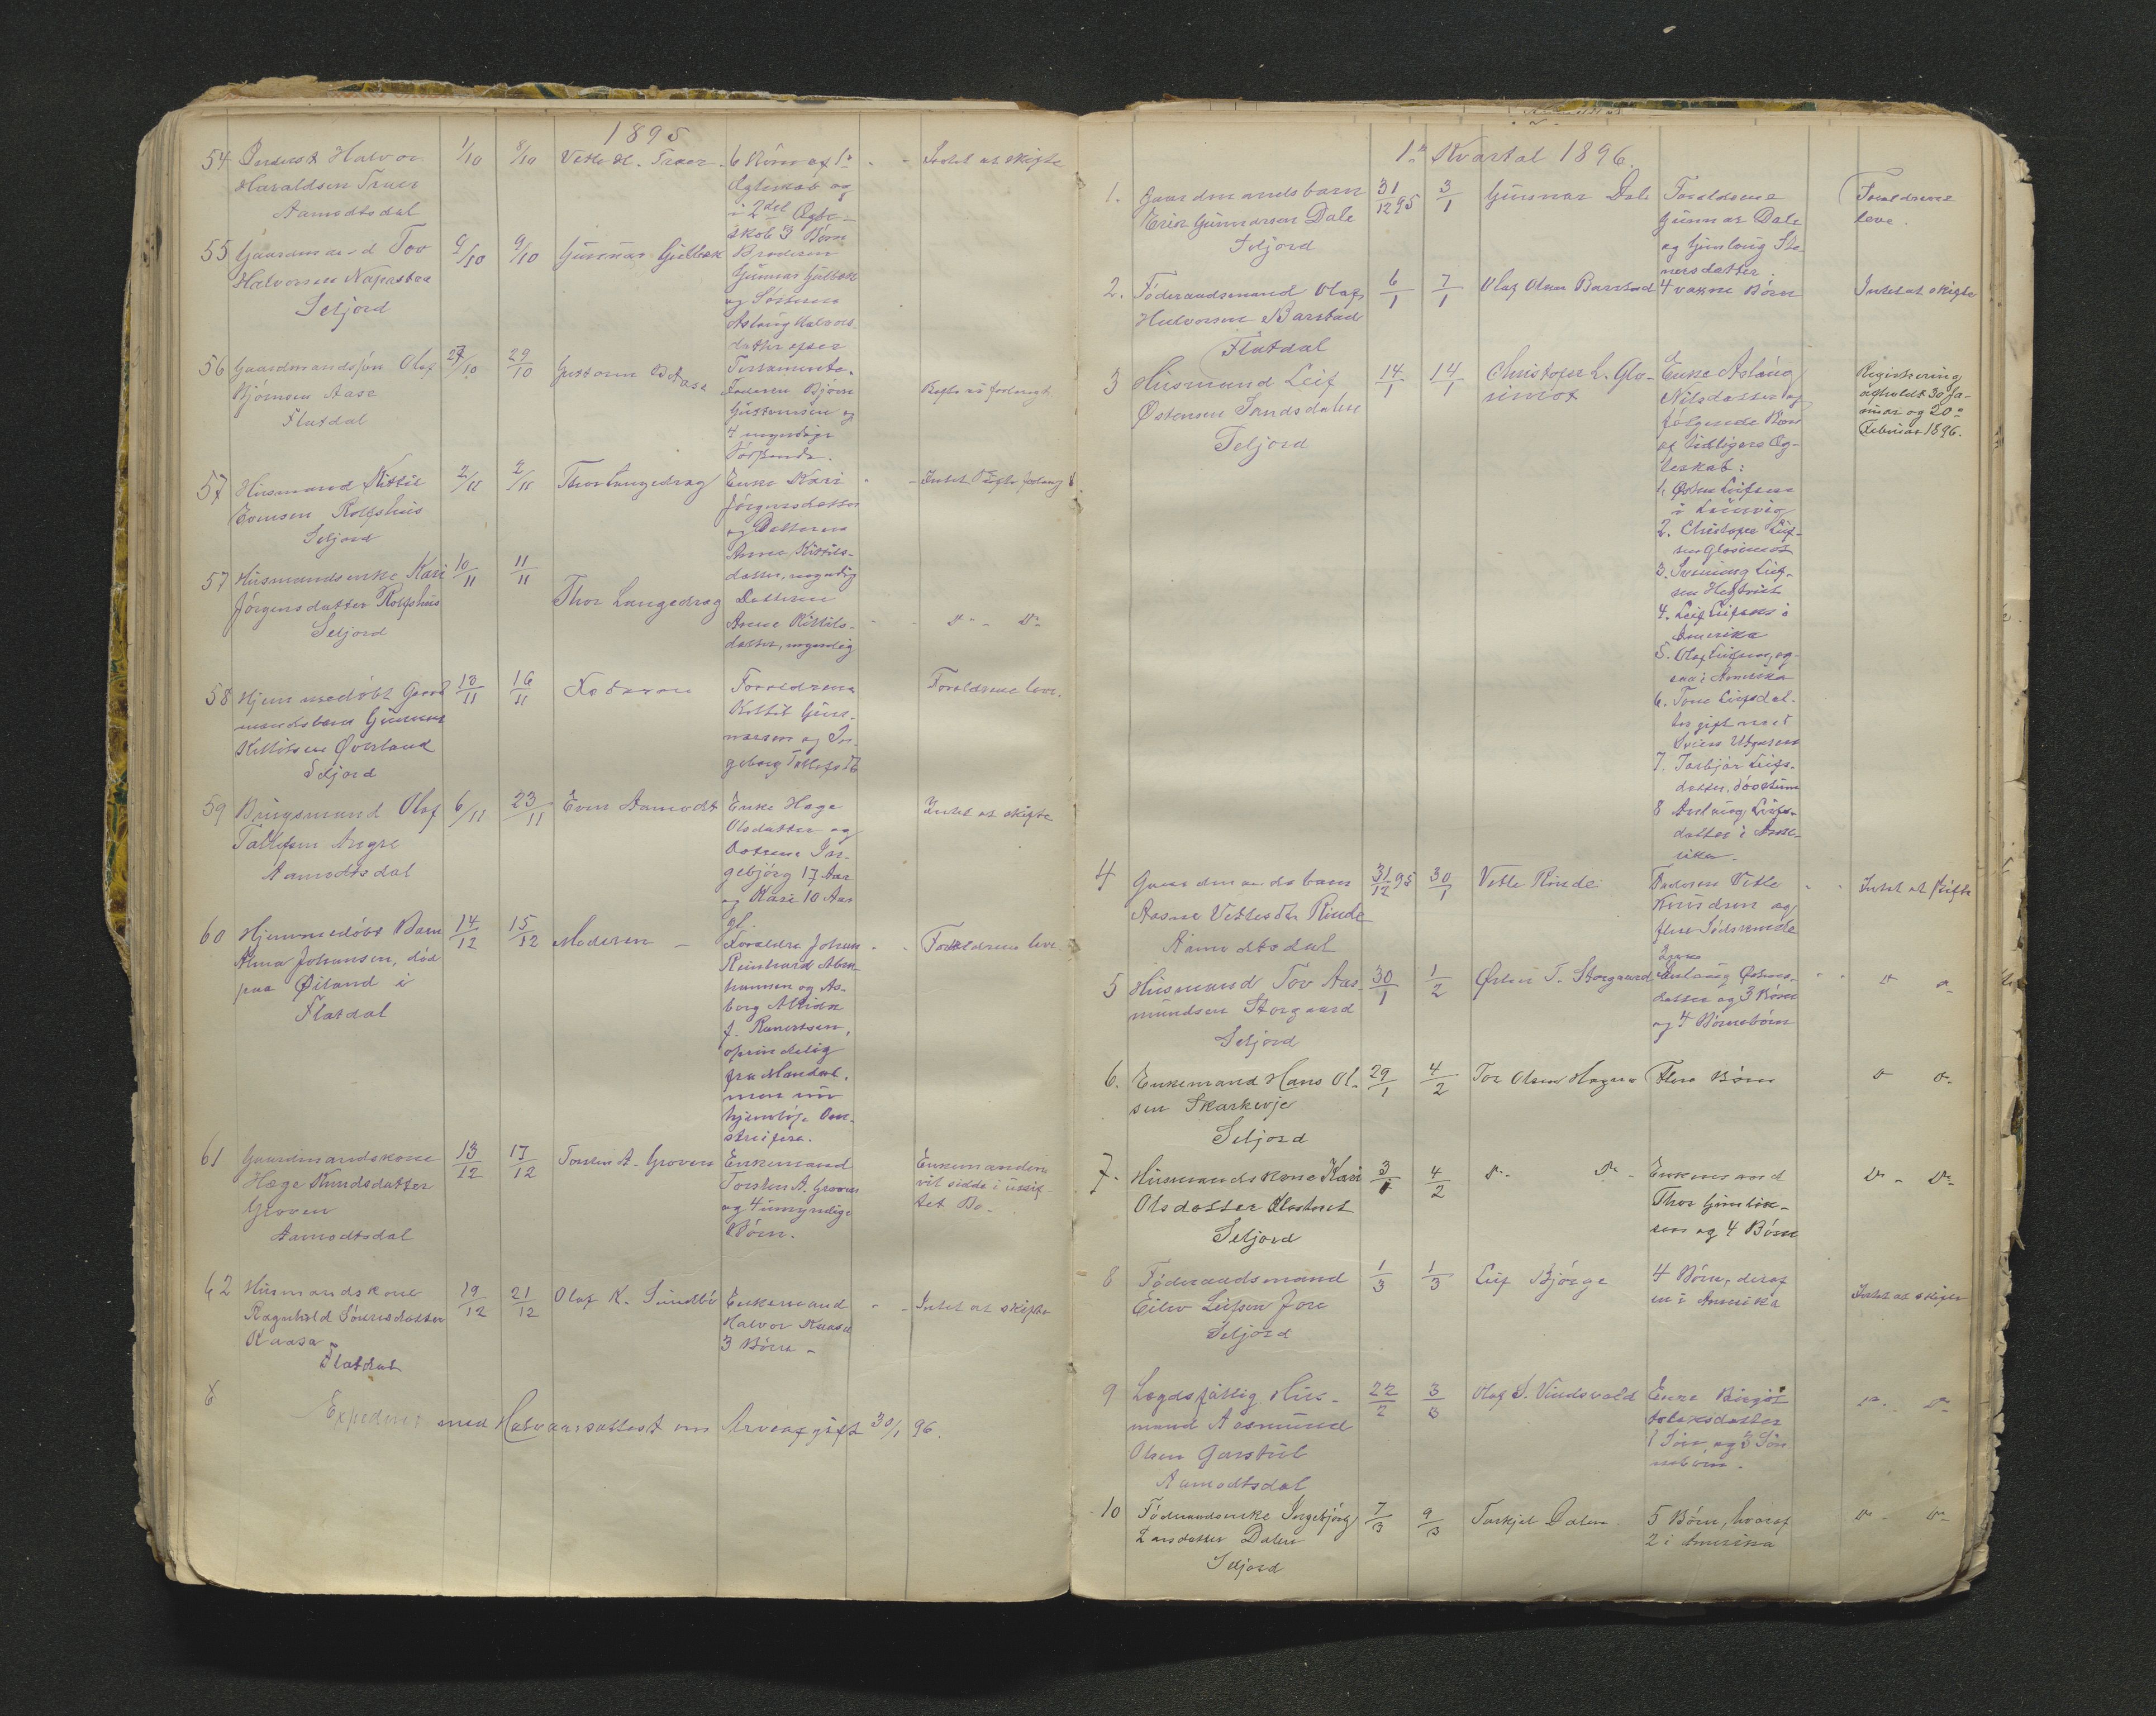 1895
54 Halvor
Haraldsen Traer
Aamodtsdal
1/10 8/10 Vetle H. Traer
6 Børn af 1ste
Ægteskab og
i 2det Ægte-
skab 3 Børn
Intet at skifte
55 Gaardmand Tov
Halvorsen
Seljord
9/10 9/10 Gunnar
Broderen
Gunnar
og Søsteren
Aslaug Halvors-
datter efter
Testamente.
56 Gaardmandssøn Olaf
Bjørnsen Aase
Flatdal
27/10 29/10 Guttorm B. Aase
Faderen Bjørn
Guttormsen og
4 myndige
Sødskende.
Skifte ei forlangt
57 Husmand Kittil
Evensen Rolfshus
Seljord
2/11 2/11 Thor Langedrag
Enke Kari
Jørgensdatter
og Datteren
Anne Kittils-
datter, myndig
Intet Skifte forlangt
57 Husmandsenke Kari
Jørgensdatter Rolfshus
Seljord
10/11 11/11
Thor Langedrag
Datteren
Anne Kittils-
datter, myndig
Do - Do
58 Hjemmedøbt Gaard
mandsbarn Gunnar
Kittilsen Øverland
Seljord
13/11 16/11 Faderen
Forældrene
Kittil Gun-
narsen og In-
geborg Tollefsdtr
Forældrene leve.
59 Brugsmand Olaf
Tallefsen
Aamodtsdal
6/11 23/11 Even Aamodt
Enke Hæge
Olsdatter og
Døtrene In-
gebjørg 17 Aar
og Kari 10 Aar
gl.
Intet at skifte
60 Hjemmedøbt Barn
Alma Johansen, død
paa Øiland i
Flatdal
14/12 15/12 Moderen -
Forældre Johan
Reinhard Abra-
hamsen og As-
borg
f.
oprindelig
fra Mandal,
men nu
hjemløse Om-
streifere.
Forældrene leve
61 Gaardmandskone
Hæge Knudsdatter
Groven
Aamodtsdal
13/12 17/12 Torsten A. Groven
Enkemand
Torsten A. Groven
og 4 umyndige
Børn.
Enkemanden
vil sidde i uskif-
tet Bo.
62 Husmandskone
Ragnhild Sørensdatter
Kaasa
Flatdal
19/12 21/12 Olaf K. Sundbø
Enkemand
Halvor Kaasa
3 Børn -
Intet at skifte
8
Expederet med Halvaarsattest om Arveafgift 30/1 96.
1ste Kvartal 1896.
1. Gaardmandsbarn
Erik Gunnarsen Dale
Seljord
31/12 95 3/1 Gunnar Dale
Forældrene
Gunnar Dale
og Gunlaug Ste-
nersdatter
Forældrene
leve.
2. Føderaadsmand Olaf
Halvorsen Barstad
Flatdal
6/1 7/1 Olaf Olsen Barstad
4 vaksne Børn
Intet at skifte
3 Husmand Leif
Østensen Sandsdalen
Seljord
14/1 14/1 Christofer L. Glo-
simot
Enke Aslaug
Nilsdatter og
følgende Børn
af tidligere Æg-
teskab:
1. Østen Leifsen
i
2. Christofer Leif-
sen Glosimot
3. Leif-
sen
4. Leif Leifsen i
Amerika
5. Olaf Leifsen og-
saa i Amerika
6. Tone Leifsdat-
ter gift med
Svein
7. Torbjør Leifs-
datter,
8 Aslaug Leifs-
datter i Ame-
rika.
Registrering
afholdt 30 Ja-
nuar og 20de
Februar 1896.
4 Gaardmandsbarn
Aasne Vetlesdtr Rinde
Aamodtsdal
31/12 95 30/1 Vetle Rinde
Faderen Vetle
Knudsen og
flere Sødskende
Intet at skifte
5 Husmand Tov Aas-
mundsen Storgaard
Seljord
30/1 1/2 Østen T. Storgaard
Enke
Østens-
datter og 3 Børn
og 4 Børnebørn
Do Do
6. Enkemand Hans Ol-
sen Skarkevje
Seljord
29/1 4/2 Tor Olsen Hagen
Flere Børn
Do Do
7. Husmandskone Kari
Olsdatter Klostret
Seljord
3/1 4/2 Do Do
Enkemand
Thor Gunleik-
sen og 4 Børn
Do - Do
8 Føderaadsmand
Eilev Leifsen Jore
Seljord
1/3 1/3 Leif Bjørge
4 Børn, deraf
en i Amerika
Intet at skifte
9 Lægdsfattig Hus-
mand Aasmund
Olsen Garstul
Aamodtsdal
22/2 3/3 Olaf S. Vindsvold
Enke
1 Søn og 3 Søn-
nebørn.
Do Do
10 Føderaadsenke Ingebjørg
Larsdatter Dalen
Seljord
7/3 9/3 Torkjel Dalen
5 Børn, hvoraf
2 i Amerika
Do - Do